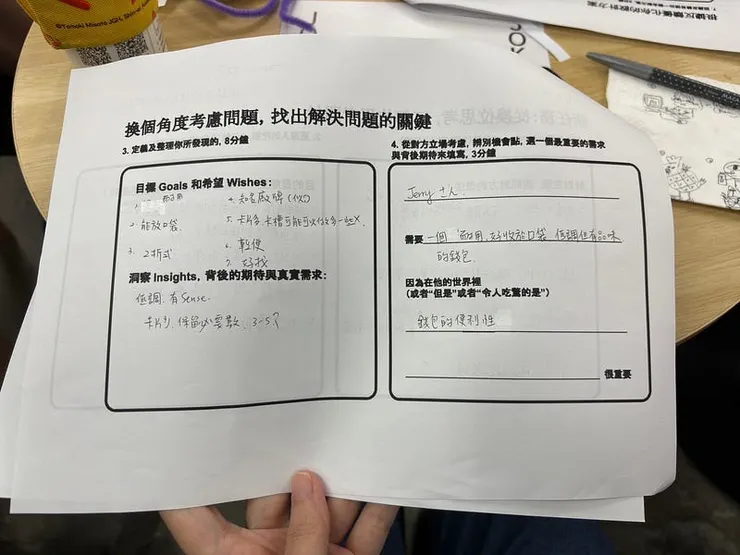 ©Temaki Maons JGH, Shinzo
換個角度考慮問題, 找出解決問題的關鍵
3. 定義及整理你所發現的, 8分鐘
目標 Goals 和希望 Wishes：
1. 耐用
2. 能放口袋
3. 2折式
4. 知名廠牌(似)
5. 卡片多、卡槽可能可以做多一些
6. 輕便
7. 好找
洞察 Insights, 背後的期待與真實需求：
低調、有 Sense.
卡片多、保留必要數、3-5?
4. 從對方立場考慮, 辨別機會點, 選一個最重要的需求
與背後期待來填寫, 3分鐘
Jerry 士人.
需要 一個 耐用、好收放口袋、低調但有品味
的錢包.
因為在他的世界裡
(或者“但是”或者“令人吃驚的是”)
錢包的便利性
很重要